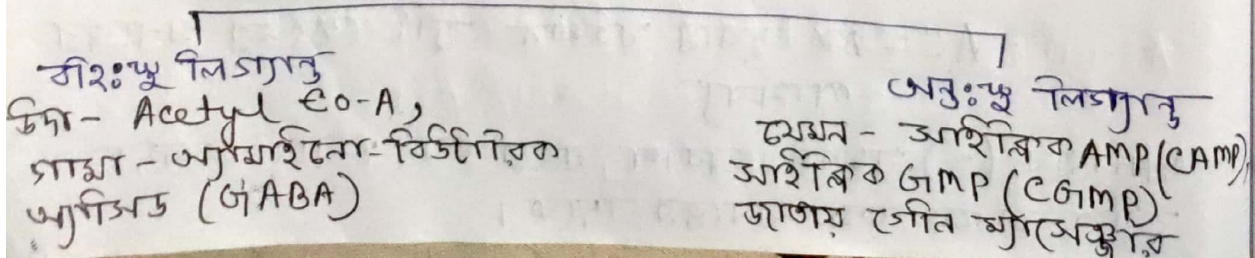 বহিঃস্থ লিগ্যান্ড
উদা- Acetyl Co-A,
গামা - অ্যামাইনো-বিউটিরিক
অ্যাসিড (GABA)
অন্তঃস্থ লিগ্যান্ড
যেমন - সাইক্লিক AMP (CAMP),
সাইক্লিক GMP (CGMP)
জাতীয় গৌন ম্যাসেঞ্জার